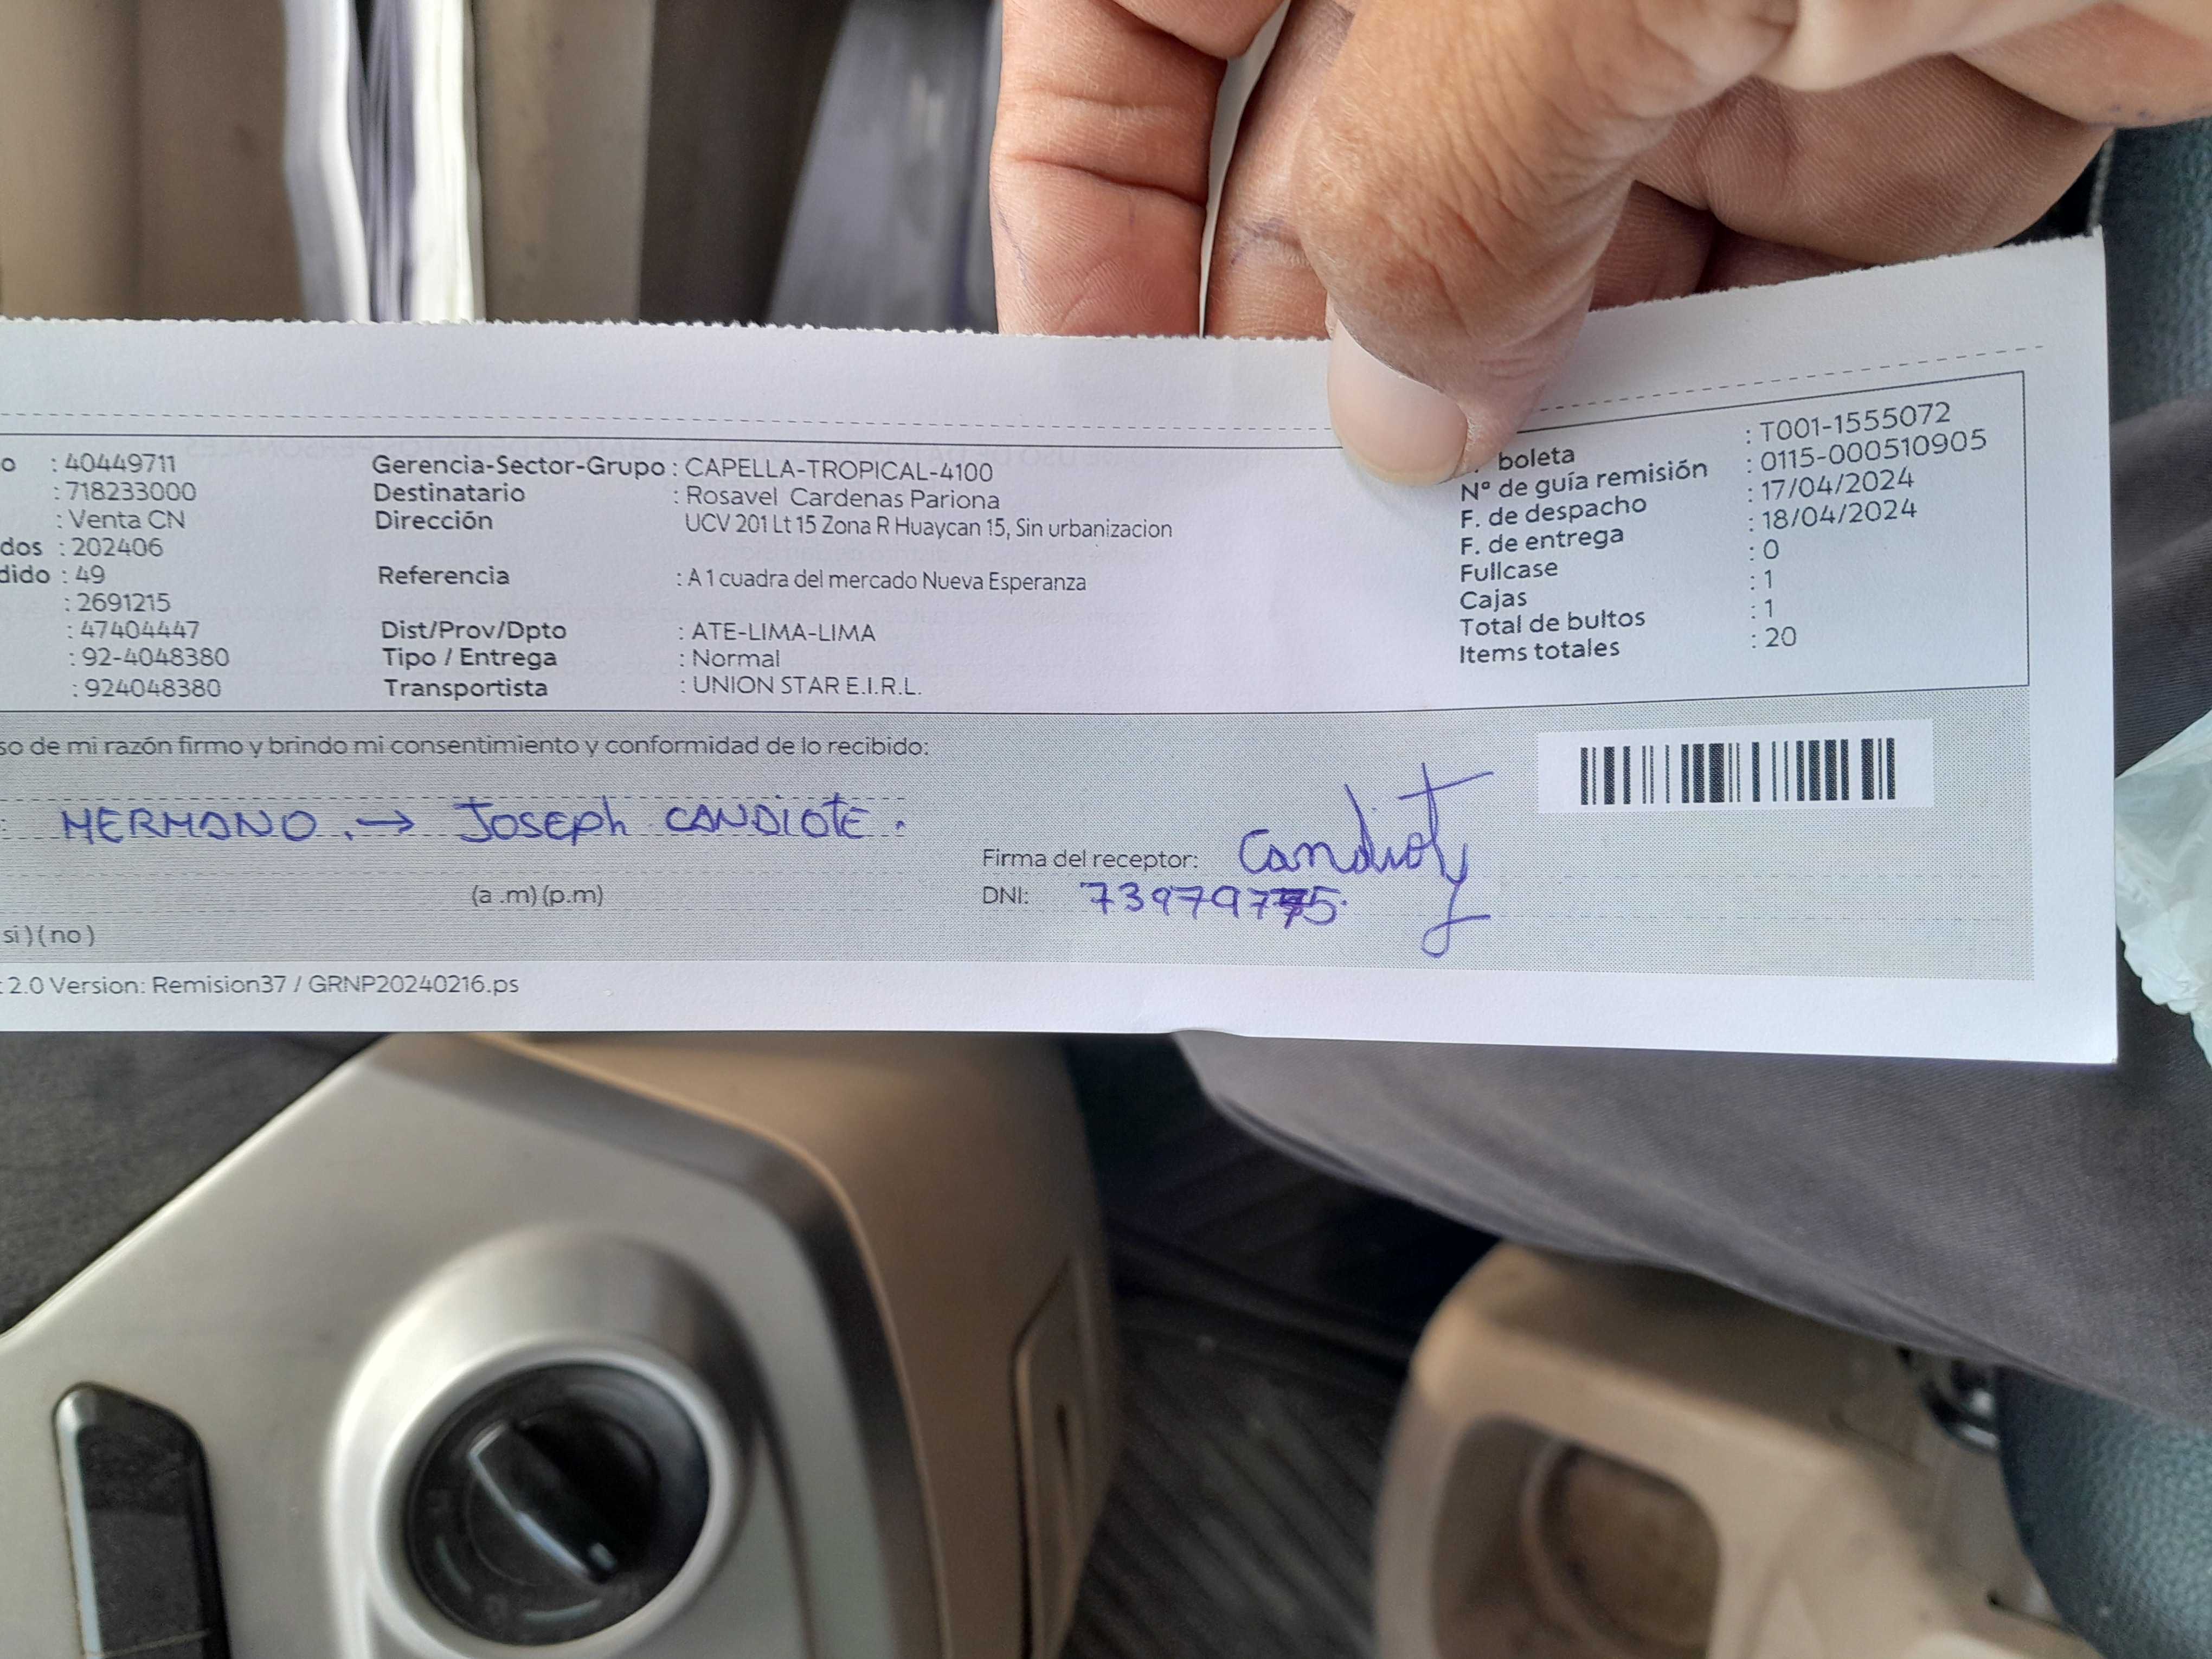 o : 40449711
: 718233000
: Venta CN
dos : 202406
dido : 49
: 2691215
: 47404447
: 92-4048380
: 924048380
Gerencia-Sector-Grupo : CAPELLA-TROPICAL-4100
Destinatario : Rosavel Cardenas Pariona
Dirección UCV 201 Lt 15 Zona R Huaycan 15, Sin urbanizacion
Referencia : A 1 cuadra del mercado Nueva Esperanza
Dist/Prov/Dpto : ATE-LIMA-LIMA
Tipo / Entrega : Normal
Transportista : UNION STAR E.I.R.L.
boleta : T001-1555072
Nº de guía remisión : 0115-000510905
F. de despacho : 17/04/2024
F. de entrega : 18/04/2024
Fullcase : 0
Cajas : 1
Total de bultos : 1
Items totales : 20
so de mi razón firmo y brindo mi consentimiento y conformidad de lo recibido:
: HERMANO. → Joseph CANDIOTE.
Firma del receptor: Candioty
(a .m) (p.m)
DNI:
si ) ( no )
: 2.0 Version: Remision37 / GRNP20240216.ps